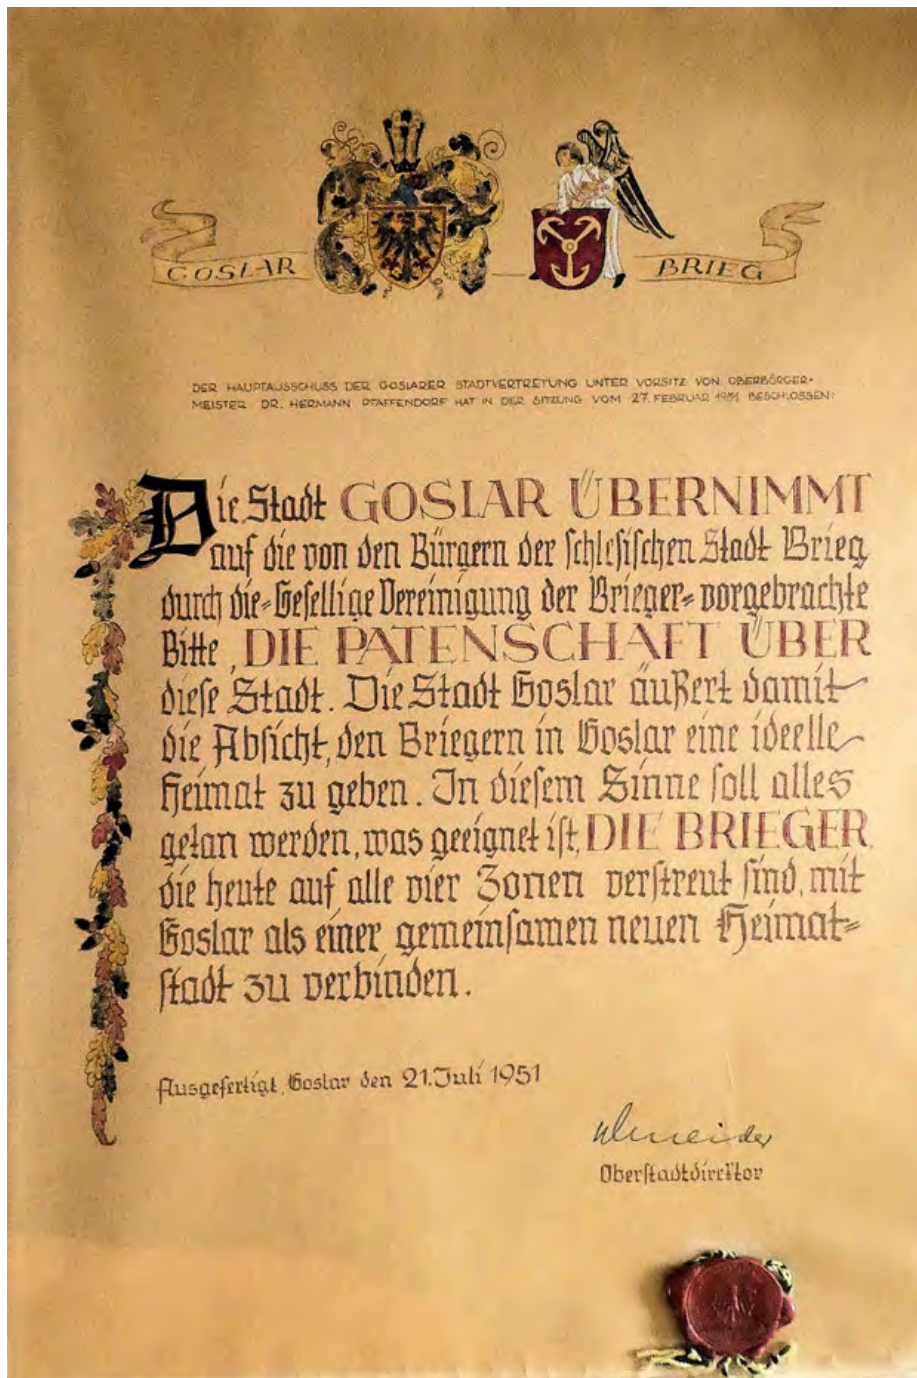 GOSLAR
BRIEG
DER HAUPTAUSSCHUSS DER GOSLARER STADTVERTRETUNG UNTER VORSITZ VON OBERBÜRGER-
MEISTER DR. HERMANN PFAFFENDORF HAT IN DER SITZUNG VOM 27. FEBRUAR 1951 BESCHLOSSEN:
Die Stadt GOSLAR ÜBERNIMMT
auf die von den Bürgern der schlesischen Stadt Brieg
durch die-Gesellige Vereinigung der Brieger-vorgebrachte
Bitte, DIE PATENSCHAFT ÜBER
diese Stadt. Die Stadt Goslar äußert damit
die Absicht, den Briegern in Goslar eine ideelle
Heimat zu geben. In diesem Sinne soll alles
getan werden, was geeignet ist, DIE BRIEGER,
die heute auf alle vier Zonen verstreut sind, mit
Goslar als einer gemeinsamen neuen Heimat-
stadt zu verbinden.
Ausgefertigt, Goslar den 21. Juli 1951
Oberstadtdirektor